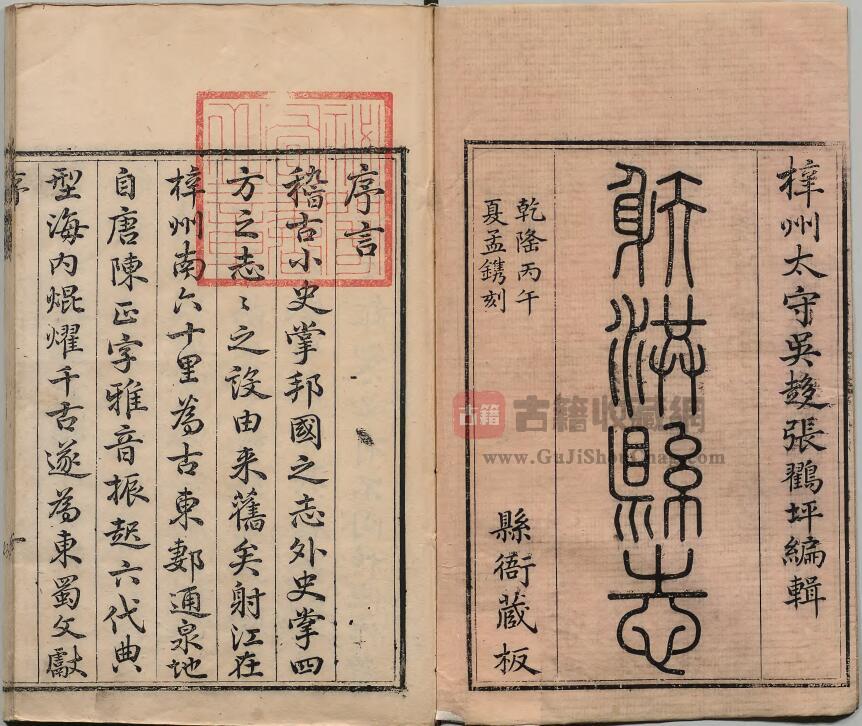 梓州太守吳趨張鶴坪編輯
射洪縣志
乾隆丙午
夏孟鐫刻
縣衙蔵板
序言
稽古小史掌邦國之志外史掌四
方之志〻之設由来舊矣射江在
梓州南六十里為古東郪通泉地
自唐陳正字雅音振起六代典
型海内焜耀千古遂為東蜀文獻
序
古籍
古籍收藏網
www.GuJiShouCang.com